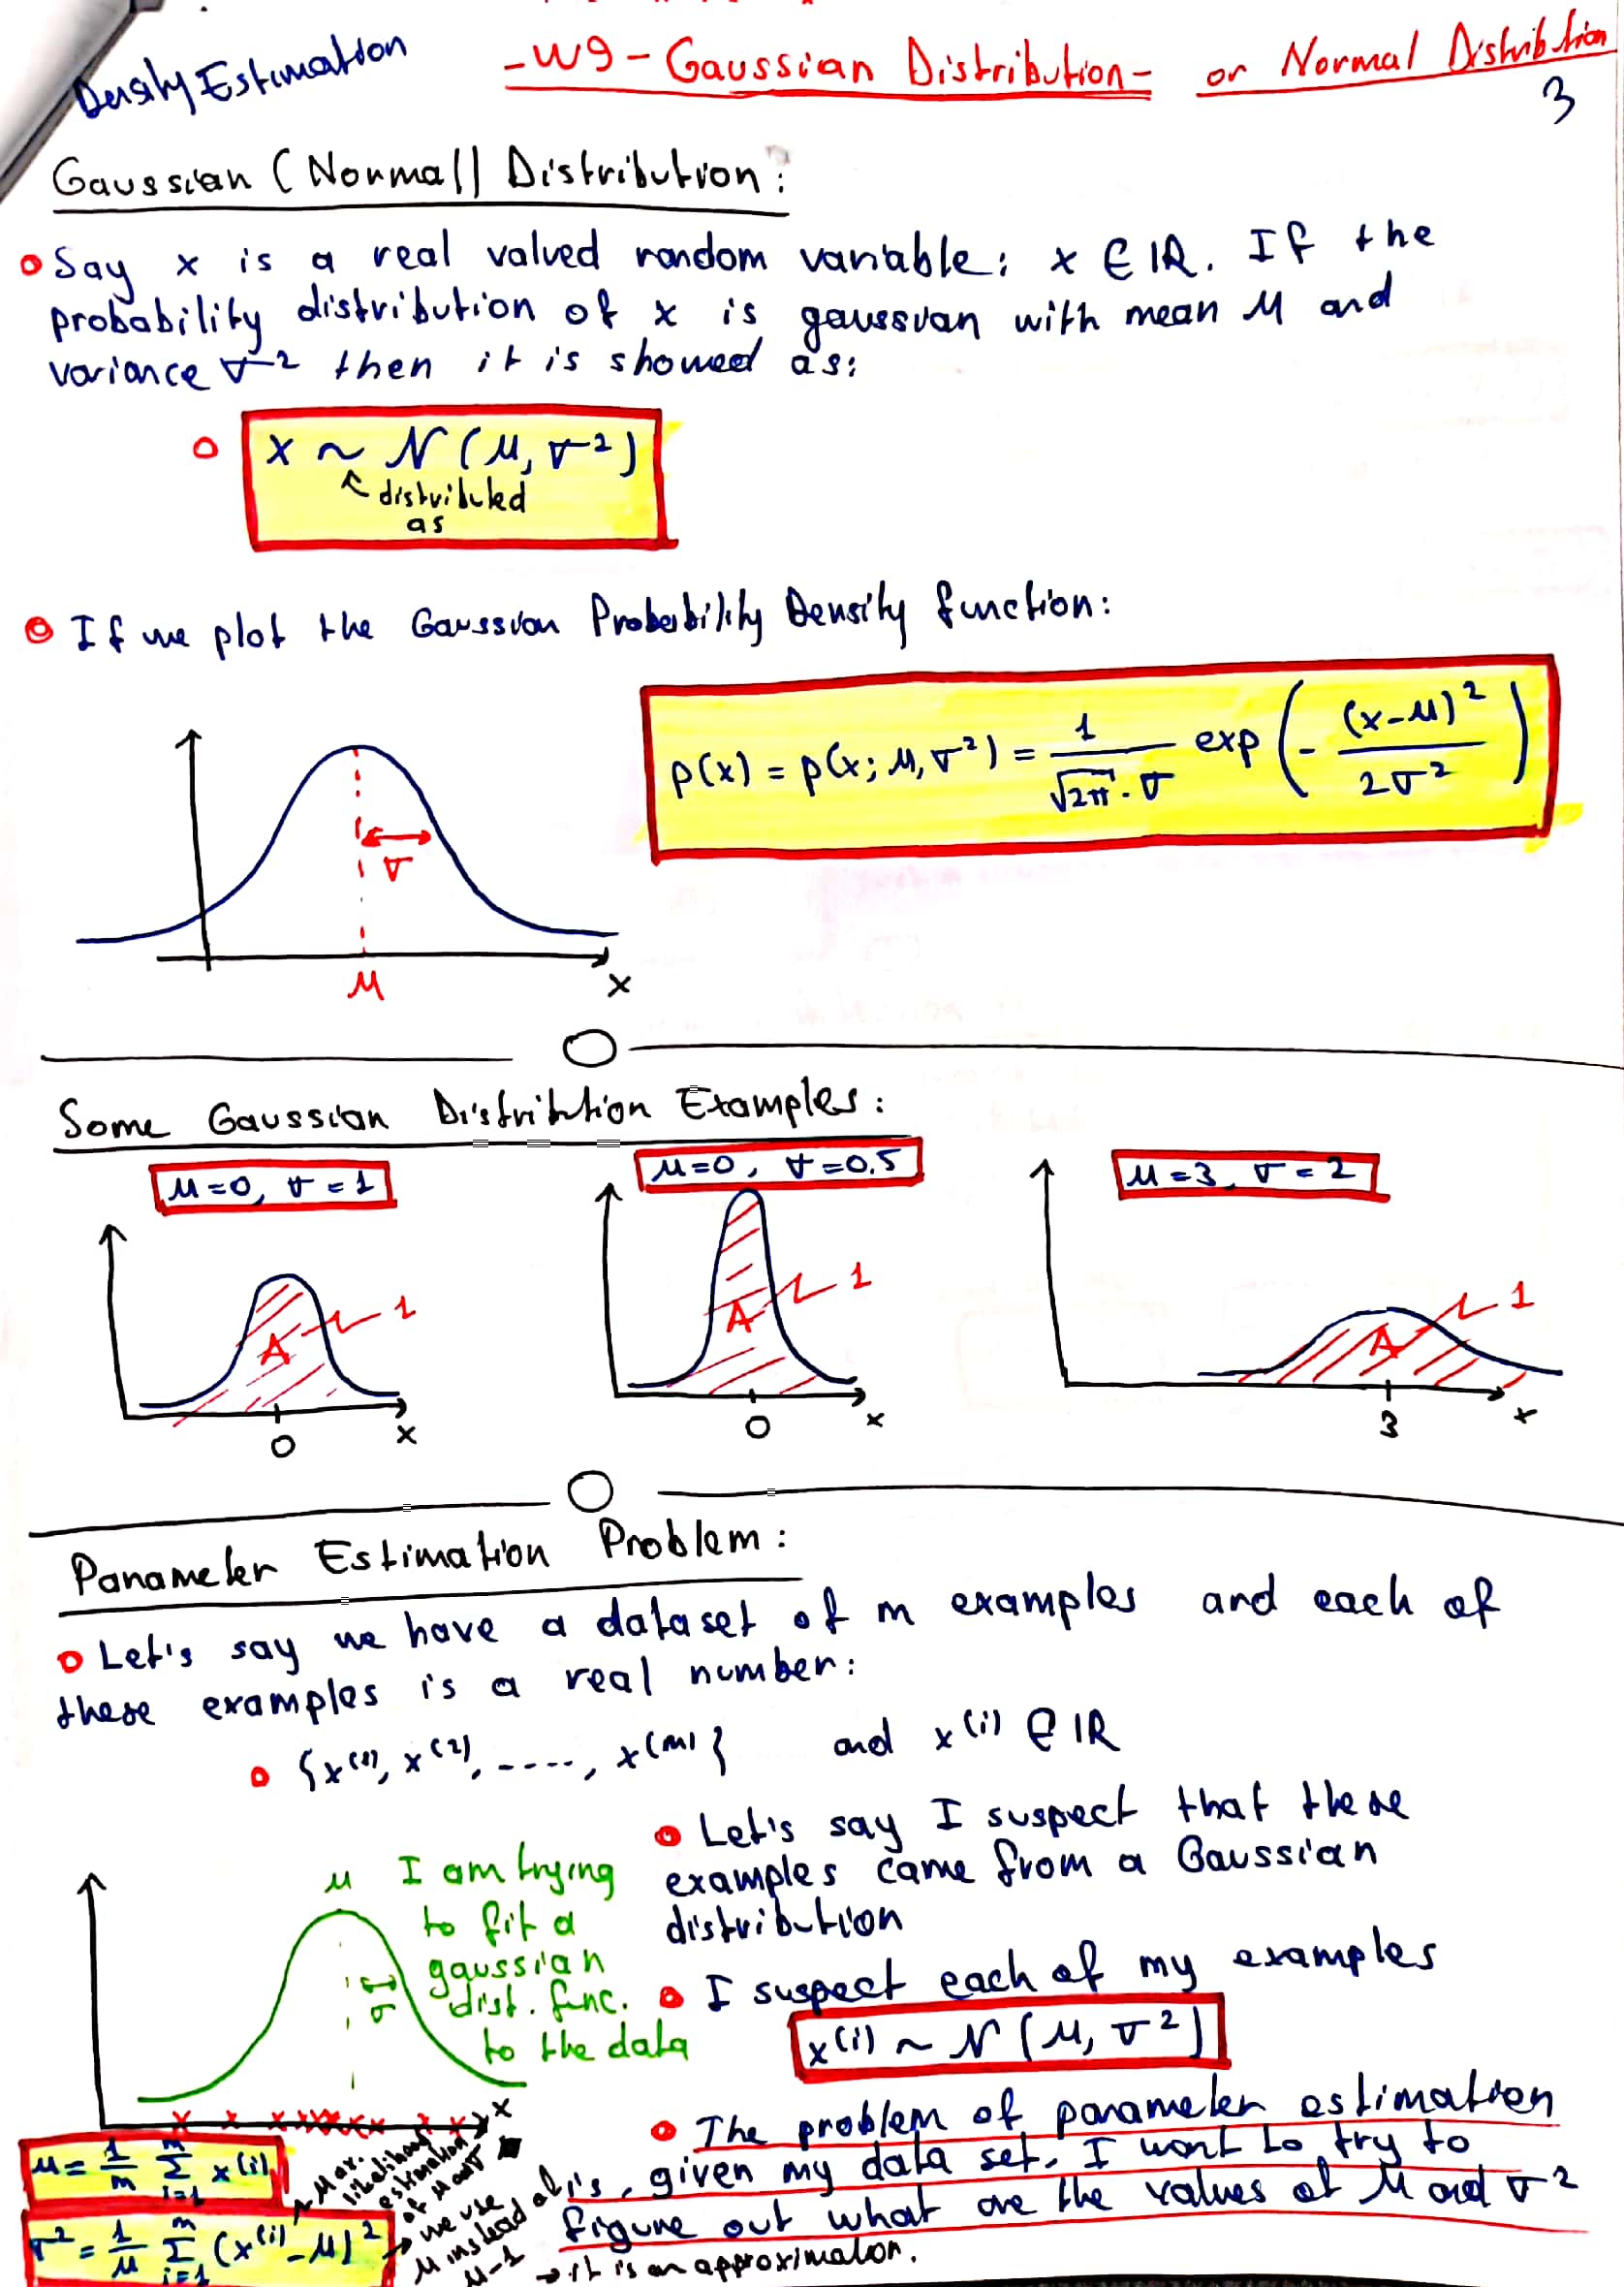 Density Estimation
-W9- Gaussian Distribution- or Normal Distribution
3
Gaussian (Normal) Distribution:
Say x is a real valued random variable: x ∈ IR. If the
probability distribution of x is gaussian with mean μ and
variance σ² then it is showed as:
x ~ N(μ, σ²)
distributed
as
If we plot the Gaussian Probability Density function:
p(x) = p(x; μ, σ²) = 1/(√2π · σ) exp(-(x-μ)²/2σ²)
σ
μ
x
Some Gaussian Distribution Examples:
μ=0, σ=1
μ=0, σ=0.5
μ=3, σ=2
A 1
A 1
A 1
0 x
0 x
3 x
Parameter Estimation Problem:
Let's say we have a dataset of m examples and each of
these examples is a real number:
{x(1), x(2), ....., x(m)} and x(i) ∈ IR
Let's say I suspect that these
examples came from a Gaussian
distribution
μ
I am trying
to fit a
gaussian
dist. func.
to the data
σ
x
I suspect each of my examples
x(i) ~ N(μ, σ²)
The problem of parameter estimation
is, given my data set, I want to try to
figure out what are the values of μ and σ²
→ it is an approximation.
μ = 1/m Σ i=1 m x(i)
σ² = 1/μ Σ i=1 m (x(i) - μ)²
Max.
likelihood
estimation
of μ and σ
→ we use
μ instead of
μ-1